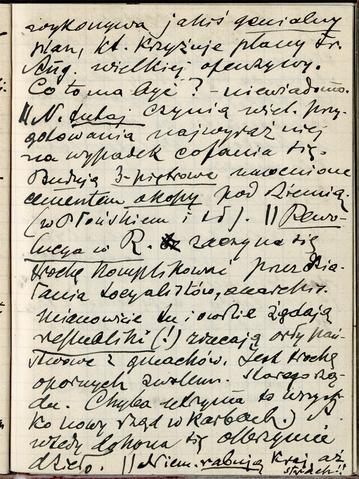 wykonywa jakiś genialny
plan, kt. krzyżuje plany fr.
Ang. wielkiej ofenzywy.
Co to ma być? - niewiadomo.
|| N. tutaj czynią wiel. przy-
gotowania najwyraźniej
na wypadek cofania się.
Budują 3-piętrowe umocnione
cementem okopy pod ziemią
(w Płońskiem i td). || Rewo-
lucya w R. zaczyna się
trochę komplikować przez dzia-
łania socyalistów, anarchis.
mianowicie tu i owdzie żądają
republiki (!) zrzucają orły pań-
stwowe z gmachów. Jest trochę
opornych zwolenn. starego rzą-
du. Chyba utrzyma to wszyst-
ko nowy rząd w karbach,
wtedy dokona się olbrzymie
dzieło. || Niem. rabują kraj aż
strach!!